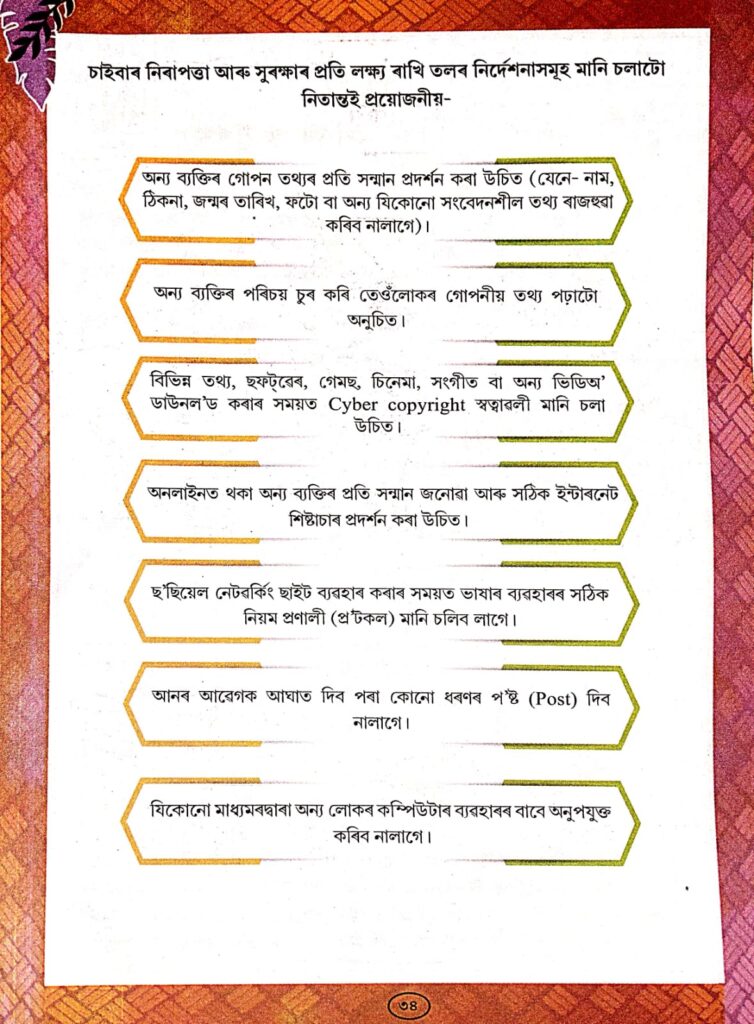 চাইবাৰ নিৰাপত্তা আৰু সুৰক্ষাৰ প্ৰতি লক্ষ্য ৰাখি তলৰ নিৰ্দেশনাসমূহ মানি চলাটো
নিতান্তই প্ৰয়োজনীয়-
অন্য ব্যক্তিৰ গোপন তথ্যৰ প্ৰতি সন্মান প্ৰদৰ্শন কৰা উচিত (যেনে- নাম,
ঠিকনা, জন্মৰ তাৰিখ, ফটো বা অন্য যিকোনো সংবেদনশীল তথ্য ৰাজহুৱা
কৰিব নালাগে)।
অন্য ব্যক্তিৰ পৰিচয় চুৰ কৰি তেওঁলোকৰ গোপনীয় তথ্য পঢ়াটো
অনুচিত।
বিভিন্ন তথ্য, ছফট্‌ৱেৰ, গেমছ, চিনেমা, সংগীত বা অন্য ভিডিঅ’
ডাউনল’ড কৰাৰ সময়ত Cyber copyright স্বত্বাৱলী মানি চলা
উচিত।
অনলাইনত থকা অন্য ব্যক্তিৰ প্ৰতি সন্মান জনোৱা আৰু সঠিক ইন্টাৰনেট
শিষ্টাচাৰ প্ৰদৰ্শন কৰা উচিত।
ছ’ছিয়েল নেটৱৰ্কিং ছাইট ব্যৱহাৰ কৰাৰ সময়ত ভাষাৰ ব্যৱহাৰৰ সঠিক
নিয়ম প্ৰণালী (প্ৰ’টকল) মানি চলিব লাগে।
আনৰ আৱেগক আঘাত দিব পৰা কোনো ধৰণৰ প’ষ্ট (Post) দিব
নালাগে।
যিকোনো মাধ্যমৰদ্বাৰা অন্য লোকৰ কম্পিউটাৰ ব্যৱহাৰৰ বাবে অনুপযুক্ত
কৰিব নালাগে।
৩৪